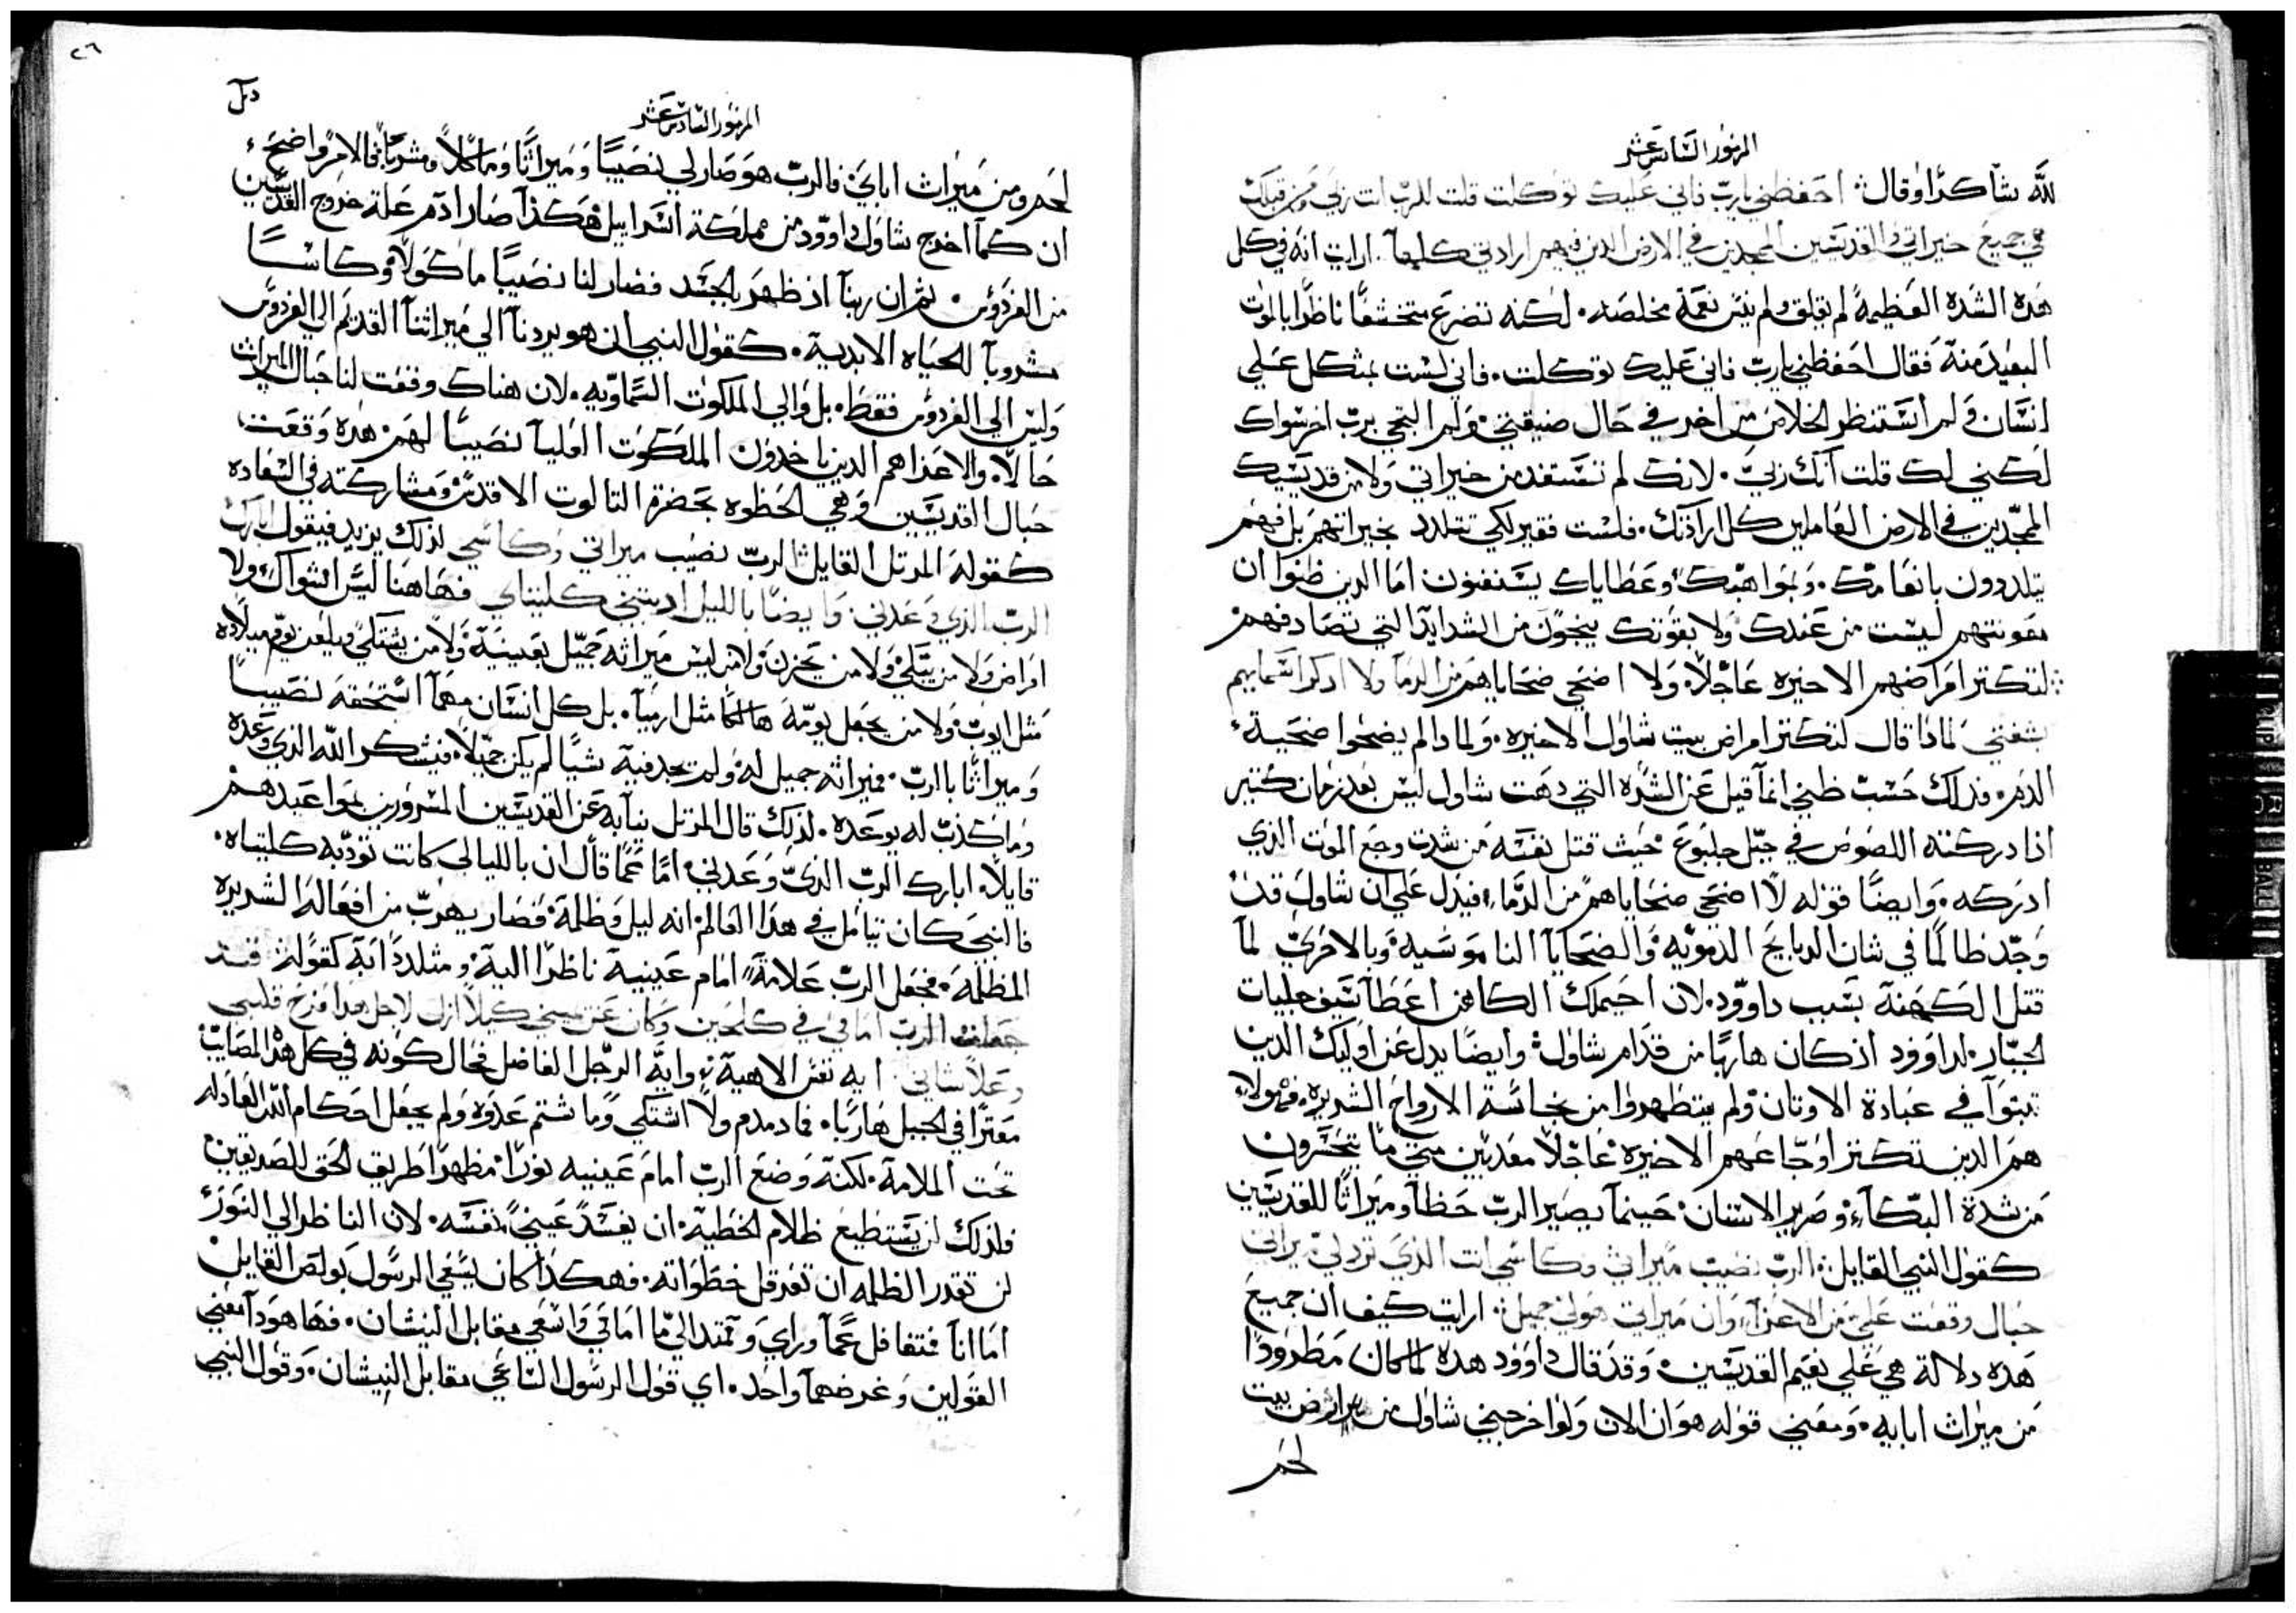 المزمور السادس عشر
لله شاكرًا وقال: احفظني يارب فاني عليك توكلت قلت للرب انت ربي ومن قبلك
هي جميع خيراتي والقديسين الممجدين في الارض الذين فيهم ارادتي كلها. ارايت انه في كل
هذه الشدة العظيمة لم يقلق ولم ينس نعمة مخلصه. لكنه تضرع متخشعًا ناظرًا بالموت
البعيد منه فقال احفظني يارب فاني عليك توكلت. فاني لست بمتكل علي
انسان ولم استنظر الخلاص من اخر في حال ضيقتي ولم التجي برب اخر سواك
لكني لك قلت انك ربي. لانك لم تستفد من خيراتي ولا من قديسيك
الممجدين في الارض العاملين كل ارادتك. فلست فقير لكي تتلدد بخيراتهم بل فهم
يتلددون بانعامك. وبمواهبك وعطاياك يستنفعون اما الذين ظنوا ان
معونتهم ليست من عندك ولا بقوتك ينجون من الشدايد التي تصادفهم
لتكثر امراضهم الاخيره عاجلًا، ولا اضحي ضحاياهم من الدما ولا ادكر اسمايهم
بشفتي لمادا قال لتكثر امراض بيت شاول الاخيره. ولمادا لم يضحوا ضحية
الدم. فذلك حسب ظني انما قيل عن الشده التي دهت شاول ليس بعد زمان كتير
اذا دركته اللصوص في جبل جلبوع حيث قتل نفسه من شدت وجع الموت الذي
ادركه. وايضًا قوله لا اضحي ضحاياهم من الدماء، فيدل علي ان شاول قد
وجد ظالمًا في شان الدبايح الدمويه والضحايا الناموسيه وبالاحري لما
قتل الكهنة بسبب داوود. لان احيملك الكاهن اعطا سيف جليات
الجبار لداوود اذ كان هاربًا من قدام شاول: وايضًا يدل عن اوليك الذين
تبتوا في عبادة الاوتان ولم يتطهروا من نجاسة الارواح الشريره. فهولاء
هم الدين تكتر اوجاعهم الاخيره عاجلًا معدبين متي ما يتحسرون
من شدة البكاء وصرير الاسنان حينما يصير الرب حظًا وميراثًا للقديسين
كقول النبي القايل: الرب نصيب ميراثي وكاسي انت الذي ترد لي ميراثي
حبال وقعت علي من الاعزاء، وان ميراثي هو لي جميل: ارايت كيف ان جميع
هده دلالة هي علي نعيم القديسين وقد قال داوود هده لما كان مطرودًا
من ميراث ابايه. ومعني قوله هو ان الان ولو اخرجني شاول من ارض بيت
لحم
٢٦
المزمور السادس عشر
لحم ومن ميراث اباي، فالرب هو صار لي نصيبًا وميراثًا وماكلًا ومشربًا، فالامر واضح
ان كما اخرج شاول داوود من مملكة اسراييل هكذا صار ادم علة خروج القديسين
من الفردوس. ثم ان ربنا اذ ظهر بالجسد فصار لنا نصيبًا ماكولًا، وكاسًا
مشروبًا للحياه الابدية. كقول النبي ان هو يردنا الي ميراثنا القديم الي الفردوس
وليس الي الفردوس فقط. بل والي الملكوت السماويه. لان هناك وقعت لنا حبال الميراث
حالًا. والاعزا هم الدين ياخدون الملكوت العليا نصيبًا لهم. هده وقعت
حبال القديسين وهي الحظوه بحضرة التالوت الاقدس ومشاركته في السعاده
كقوله المرتل القايل: الرب نصيب ميراثي وكاسي لذلك يزيد فيقول ابارك
الرب الذي وعدني. وايضًا بالليل ادبتني كليتاي فهاهنا ليس اشواك ولا
امراض ولا من يبكي ولا من يحزن ولا من ليس ميراثه جميل بعينيه ولا من يشتكي ويلعن يوم ميلاده
مثل ايوب، ولا من يجعل يومه هالكًا مثل ارميا. بل كل انسان مهما استحقه نصيبًا
وميراثًا بالرب. فميراثه جميل له، ولم يجد فيه شيًا لم يكن جميلًا، فيشكر الله الذي وعده
وما كذب له بوعده. لذلك قال المرتل نيابة عن القديسين المسرورين بمواعيدهم
قايلًا. ابارك الرب الذي وعدني. اما عما قال ان بالليالي كانت تودبه كليتاه.
فالنبي كان يتامل في هذا العالم انه ليل وظلمة، فصار يهرب من افعاله الشريره
المظلمه. فجعل الرب علامةً امام عينيه ناظرًا اليه ومتلددًا به كقوله: قد
جعلت الرب امامي في كل حين وكان عن يميني كيلا ازل لاجل هدا فرح قلبي
وعلا شاني. ايه نفس الاهية وايه الرجل الفاضل فحال كونه في كل هده المصايب
معترًا في الجبل هاربًا. فما دمدم ولا اشتكي وما شتم عدوه ولم يجعل احكام الله العادله
تحت الملامة. لكنه وضع الرب امام عينيه نورًا مظهرًا طريق الحق للصديقين
فلذلك لن يستطيع ظلام الخطية ان يفسد عيني نفسه. لان الناظر الي النور
لن تقدر الظلمه ان تعرقل خطواته. فهكذا كان يسعي الرسول بولص القايل
اما انا فتغافل عما وراي وتمتد الي ما امامي واسعي مقابل النيشان. فها هودا معني
القولين وغرضهما واحد. اي قول الرسول الساعي مقابل النيشان. وقول النبي